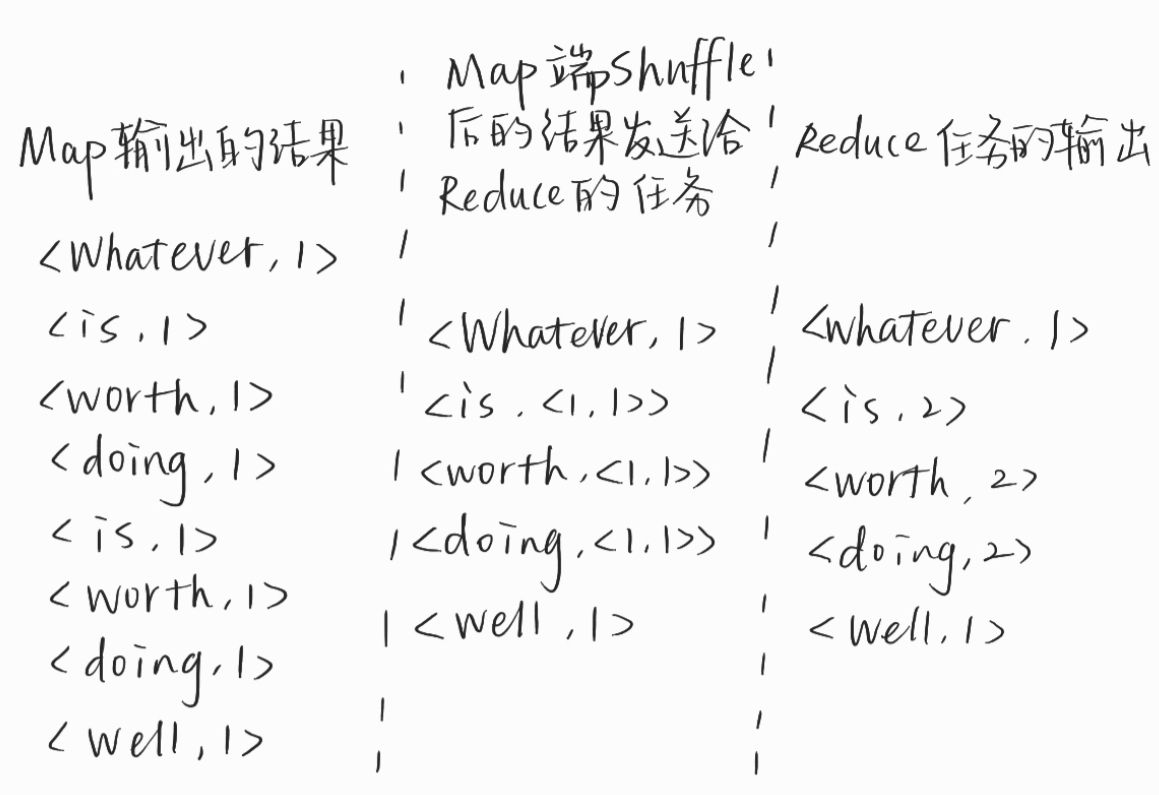 Map输出的结果
<Whatever, 1>
<is, 1>
<worth, 1>
<doing, 1>
<is, 1>
<worth, 1>
<doing, 1>
<well, 1>
Map端Shuffle
后的结果发送给
Reduce的任务
<Whatever, 1>
<is, <1, 1>>
<worth, <1, 1>>
<doing, <1, 1>>
<well, 1>
Reduce任务的输出
<whatever, 1>
<is, 2>
<worth, 2>
<doing, 2>
<well, 1>